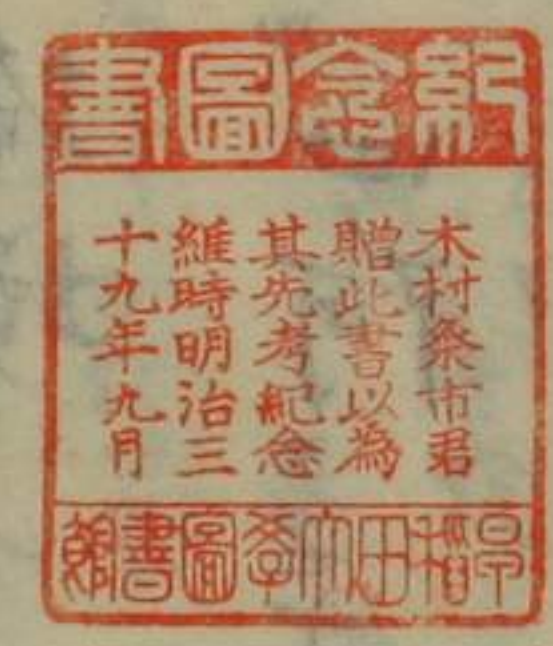 紀念圖書
木村粂市君
贈此書以為
其先考紀念
維時明治三
十九年九月
早稲田大學圖書館